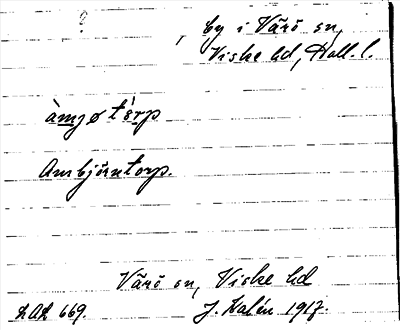 ?
, by i Värö sn,
Viske hd, Hall. l.
àmjøtèrp
Ambjörntorp.
Värö sn, Viske hd
LAL 669. J. Kalén 1917.